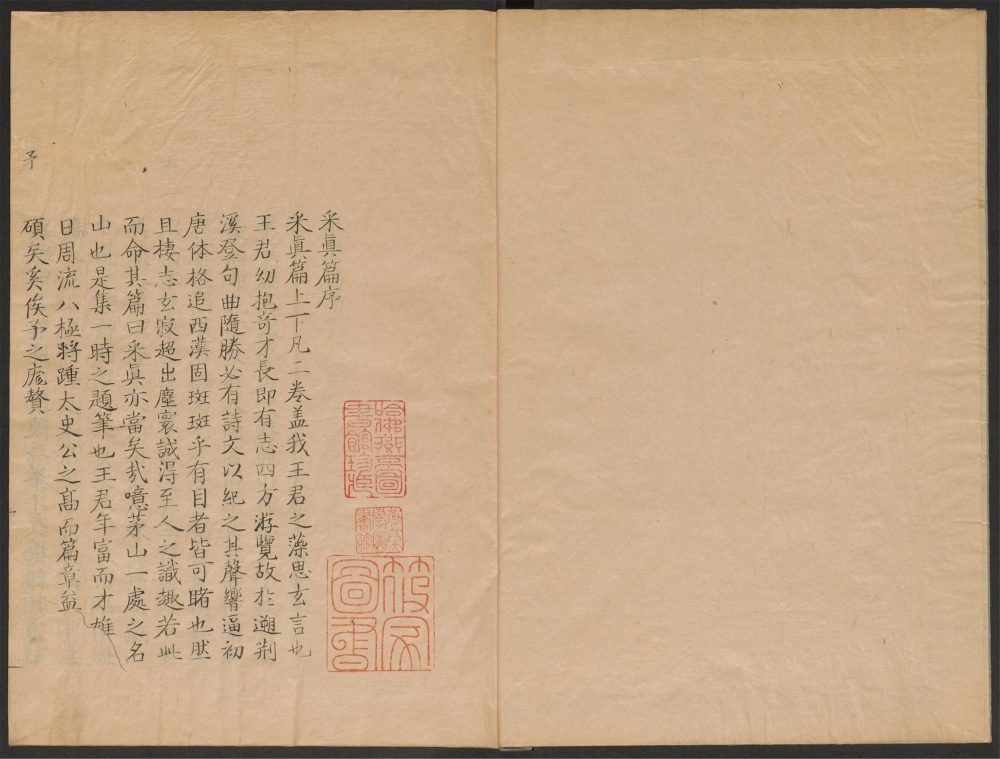 采眞篇序
采眞篇上下凡二卷盖我王君之藻思玄言也
王君幼抱奇才長即有志四方游覽故於遡荆
溪登句曲隨勝必有詩文以紀之其聲響逼初
唐体格追西漢固斑斑乎有目者皆可睹也然
且棲志玄寂超出塵寰誠得至人之識趣若此
而命其篇曰采眞亦當矣㢤噫茅山一處之名
山也是集一時之題筆也王君年富而才雄
日周流八極將踵太史公之髙而篇章益
碩矣奚俟予之庬贅
予